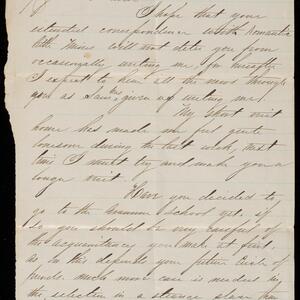 I hope that your
extended correspondence with Romantic
little Misses will not deter you from
occasionally writing me, for
I expect to hear all the news through
you as has given up writing me!
My short visit
home has made me feel quite
lonesome during the last week, next
time I must try and make you a
longer visit.
Have you decided to
go to the Grammar School yet, if
so you should be very careful of
the acquaintances you make at first,
as on this depends your future Circle of
friends. Much more care is needed in
the selection in a strange place than